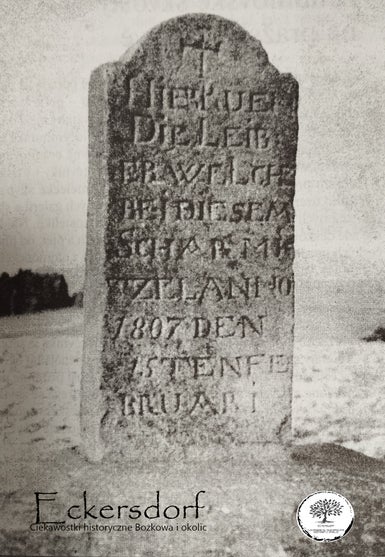 HIER RUE
DIE LEIB
ER WELCHE
BEI DIESEM
SCHARMI
ZEL ANNO
1807 DEN
15TEN FE
BRUARI
Eckersdorf
Ciekawostki historyczne Bożkowa i okolic